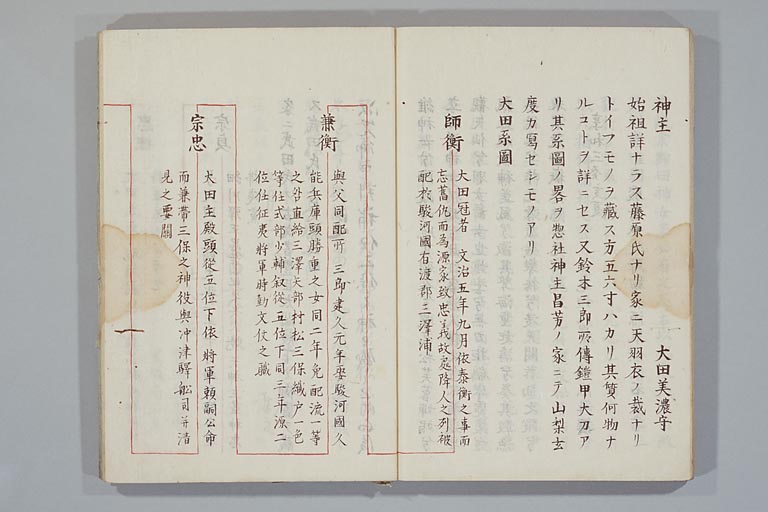 神主　大田美濃守
始祖詳ナラス藤原氏ナリ家ニ天羽衣ノ裁ナリ
トイフモノヲ藏ス方五六寸ハカリ其質何物ナ
ルコトヲ詳ニセス又鈴木三郎所傳鎧甲大刀ア
リ其系圖ノ畧ヲ惣社神主昌芳ノ家ニテ山梨玄
度カ寫セシモノアリ
大田系圖
師衡
大田冠者　文治五年九月依泰衡之事而
忘舊仇而為源家致忠義故處降人之列被
配於駿河國有渡郡三澤浦
兼衡
與父同配所　三郎建久元年娶駿河國久
能兵庫頭勝重之女同二年免配流一等
之咎直給三澤矢部村松三保織戸一色
等任式部少輔叙從五位下同三年源二
位任征夷將軍時勤文仗之職
宗忠
大田主殿頭從五位下依將軍頼嗣公命
而兼帶三保之神役與冲津驛船司并清
見之要關